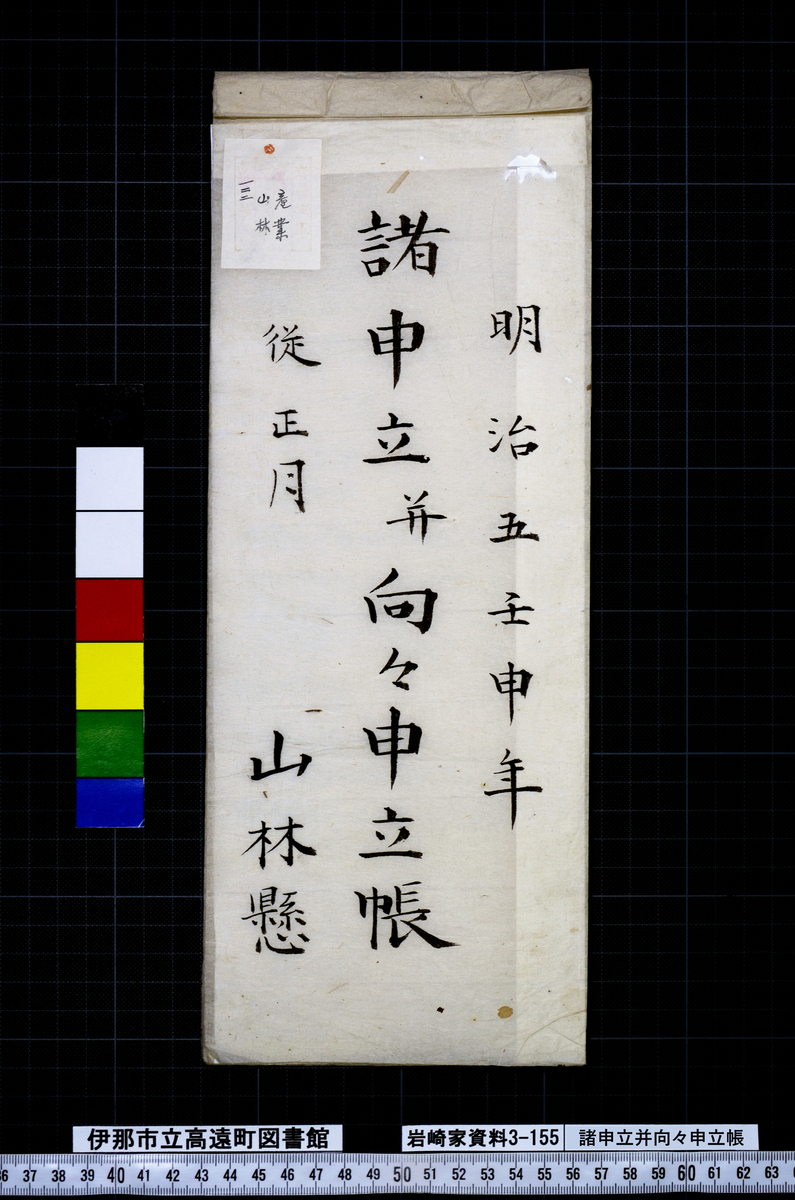 明治五壬申年
諸申立并向々申立帳
従正月
山林懸
産業
山林
伊那市立高遠町図書館
岩崎家資料3-155
諸申立并向々申立帳
36 37 38 39 40 41 42 43 44 45 46 47 48 49 50 51 52 53 54 55 56 57 58 59 60 61 62 63